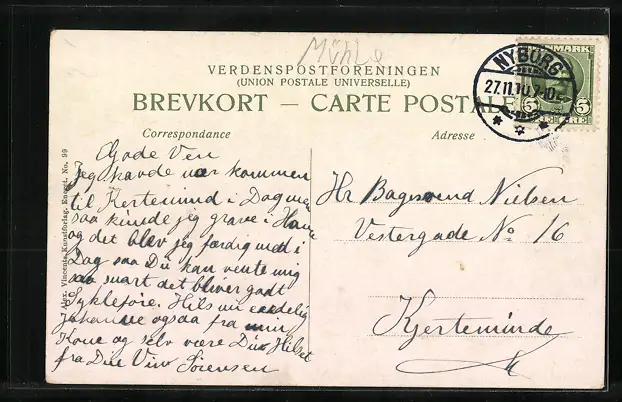 Mühle
VERDENSPOSTFORENINGEN
(UNION POSTALE UNIVERSELLE)
BREVKORT – CARTE POSTALE
NYBORG
27.11.10. 7-10
DANMARK
5 5
Correspondance
Adresse
Alex. Vincents Kunstforlag, Eneret. No. 99
Gode Ven
Jeg havde vær kommen
til Kertemind i Dag men
saa kunde jeg grave i Have
og det blev jeg færdig med i
Dag saa Du kan vente mig
saa snart det bliver godt
Sykleføre. Hils
Johanne ogsaa fra min
Kone og selv være Du Hilset
fra Din Ven Sørensen
Hr Nielsen
Vestergade No 16
Kjerteminde